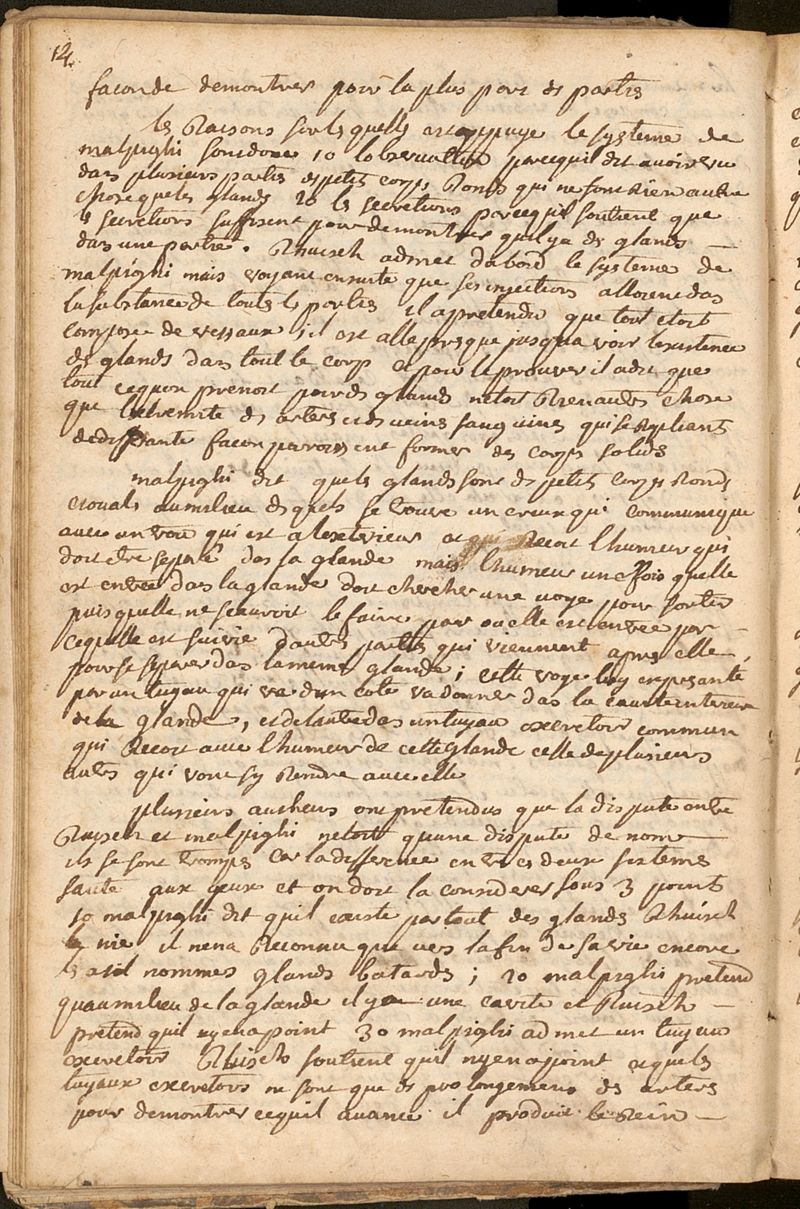 14.
facon de demontrer pour la plus part des parties
les Raisons sur les quells est appuye le systeme de
malpighi sont donc 1o lobservation parcequil dit avoir vu
dans plusieurs parties des petits corps Ronds qui ne sont Rien autre
chose que les glands 2o les secretions parcequil soutient que
les secretions suffisent pour demontrer quil y a des glands —
dans une partie. Rhuisch admet dabord le systeme de
malpighi mais voyant ensuite que ses injections alloient dans
la substance de touts les parties il a pretendu que tout etoit
compose de vessaux, il est alle presque jusqua voir lexistence
des glands dans tout le corps et pour le prouver il a dit que
tout ce quon prenoit pour des glands netoit Rien autre chose
que lextremite des arteres et des veins sanguins qui se Repliants
de differante facon paroissent former des corps solids
malpighi dit que les glands sont des petits corps Ronds
et ovals au milieu des quels se trouve un creux qui communique
avec un trou qui est a lexterieur et qui Recoit lhumeur qui
doit etre separe dans sa glande mais lhumeur une fois quelle
est entree dans la glande doit chercher une voye pour sortir
puis quelle ne scauroit le faire par ou elle est entree par —
ce quelle est suivie dautres parties qui viennent apres elle,
pour se separer dans la meme glande; cette voye luy en presente
par un tuyau qui va dun cote va donner dans la cavite interieure
de la glande, et de lautre dans un tuyau excretoir commun
qui Recoit avec lhumeur de cette glande celle de plusieurs
autres qui vont sy Rendre avec elle
plusieurs autheurs ont pretendus que la dispute entre
Ruisch et malpighi netoit quune dispute de nom —
ils se sont tromps car la difference entre ces deux sistemes
saute aux yeux et on doit la considerer sous 3 points
1o malpighi dit quil existe par tout des glands Rhuisch
les nie il nen a Reconnu que vers la fin de sa vie encore
les a til nommes glands batards; 2o malpighi pretend
quau milieu de la glande il y a une cavite et Ruisch —
pretend quil ny en a point 3o malpighi admet un tuyau
excretoir Rhuisch soutient quil ny en a point et que les
tuyaux excretoirs ne sont que des prolongemens des arteres
pour demontrer ce quil avance il produit le Rein —